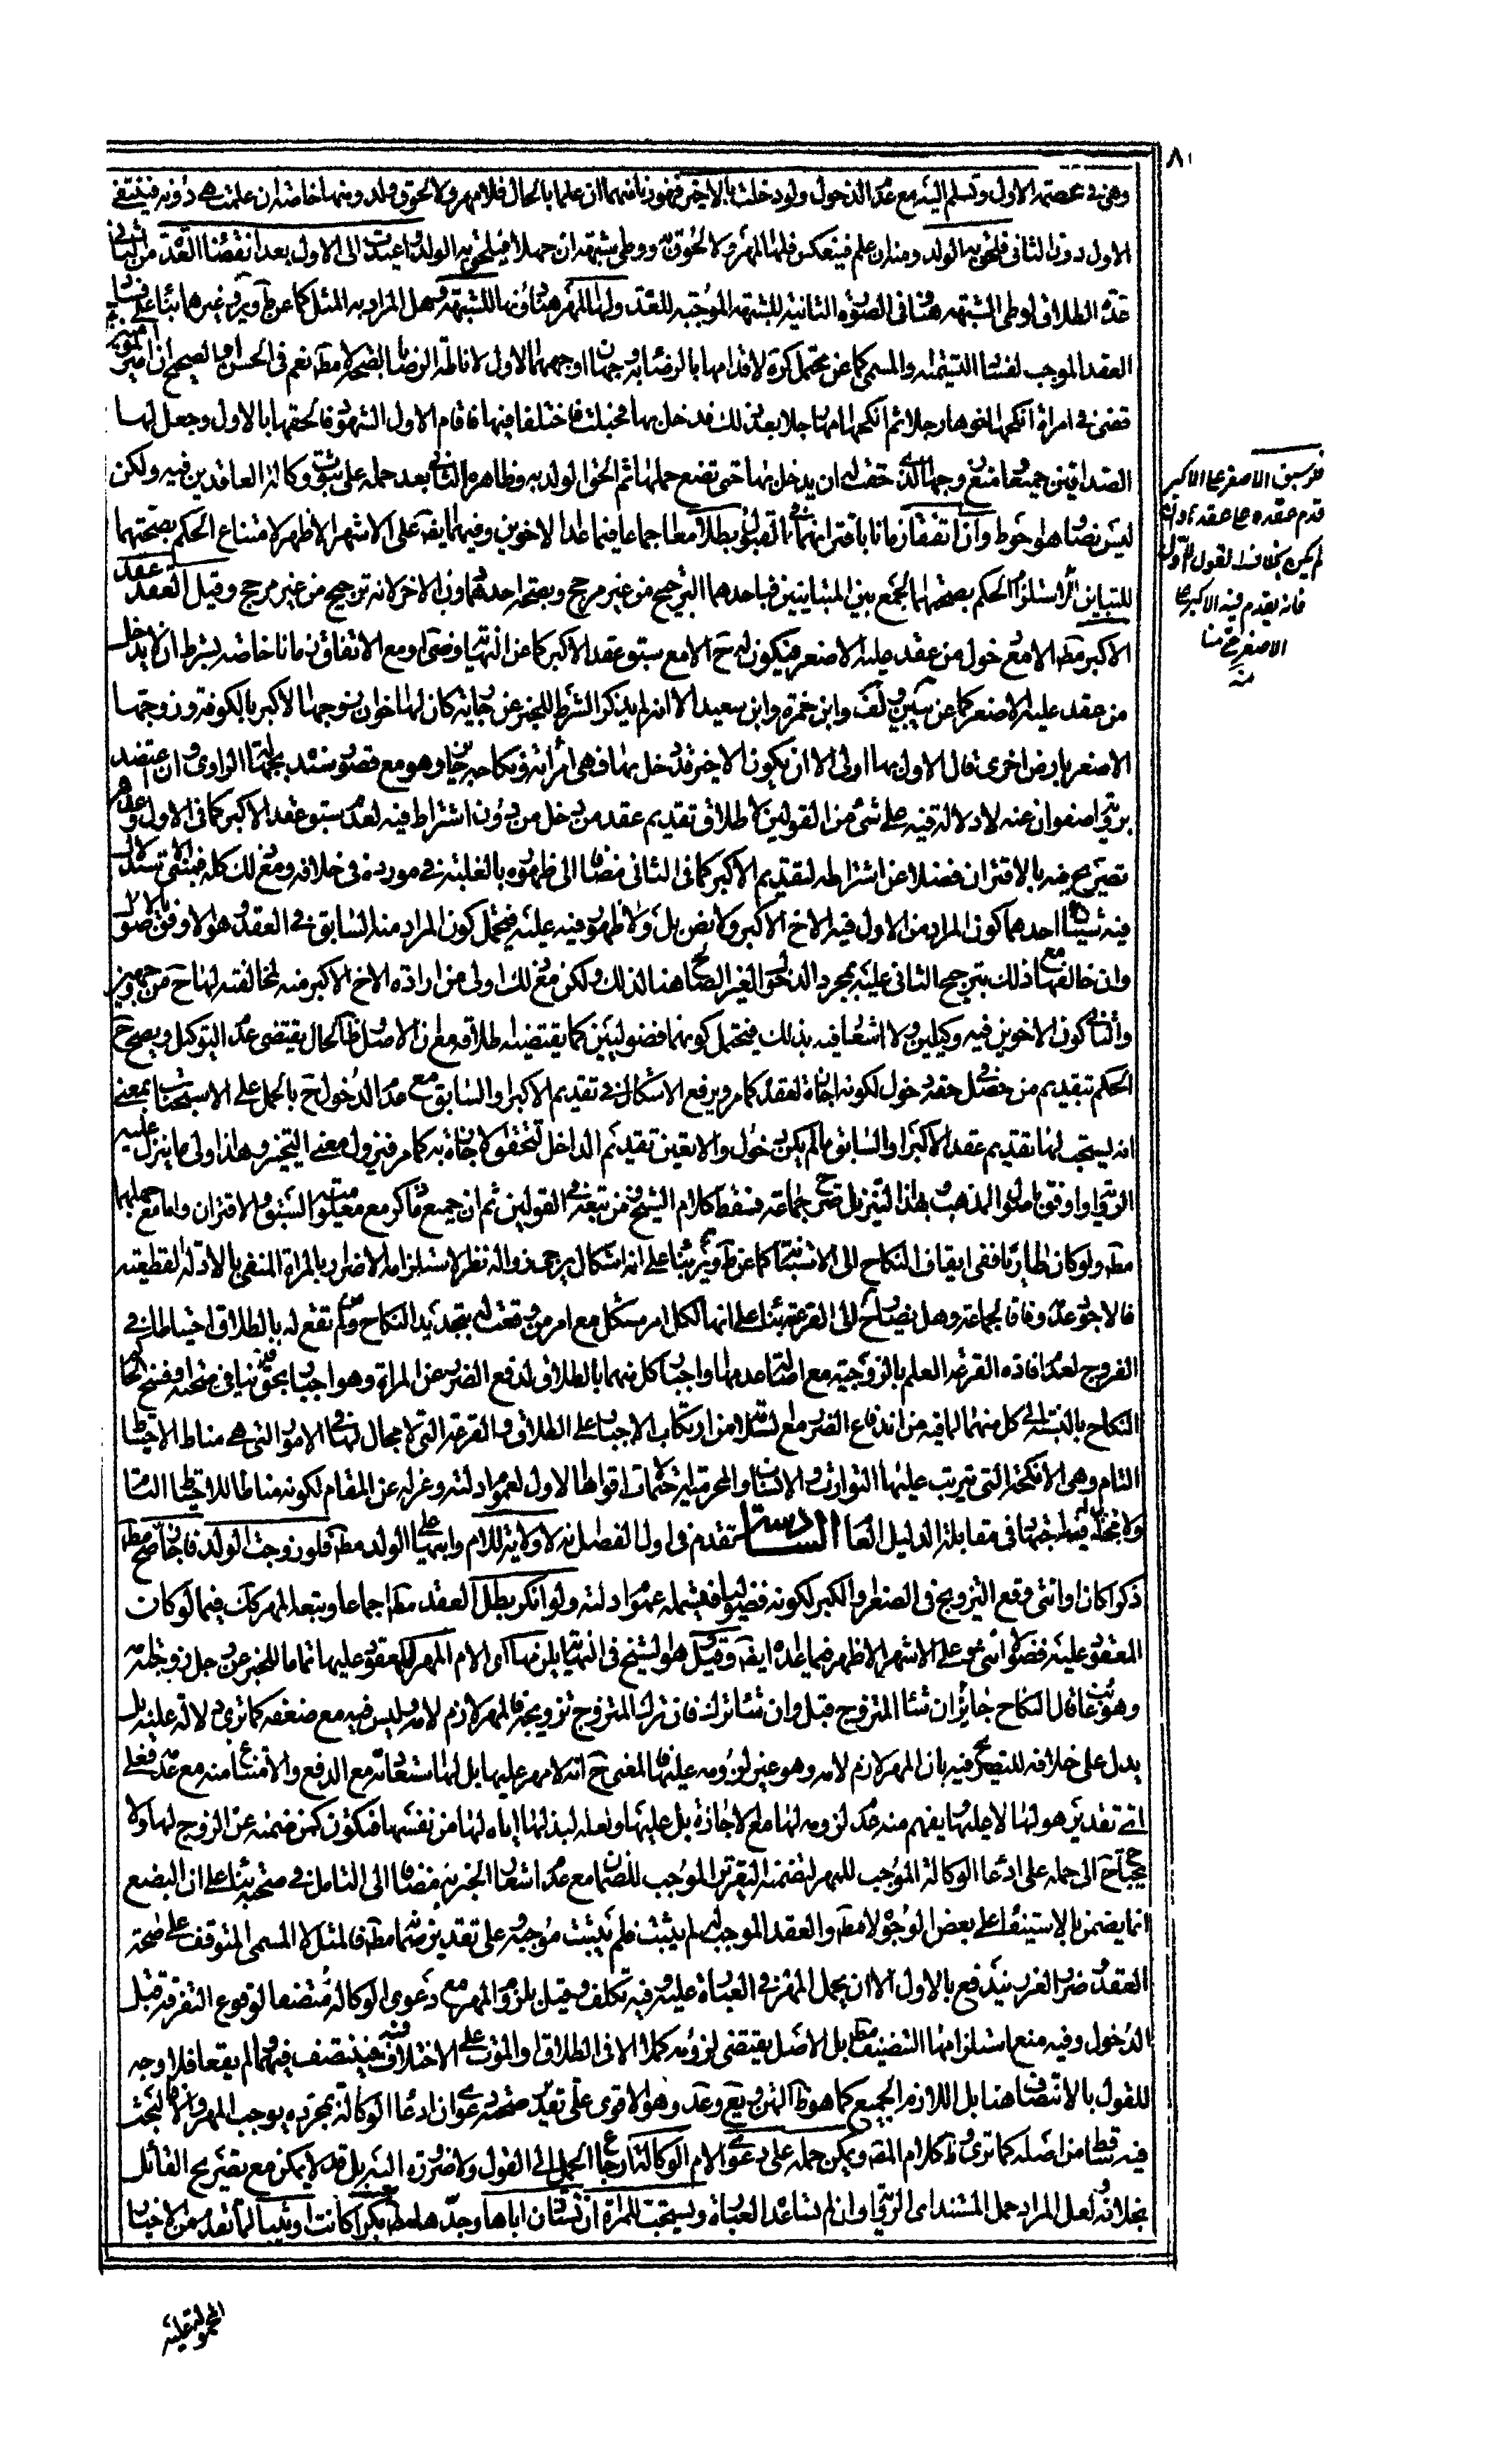 ٨١
وهي في عصمته الاول وتسلم اليه مع عدم الدخول ولو دخلت بالاخير فهو زنا منهما ان علما بالحال فلا مهر ولا لحوق ولد ومنها خاصة ان علمت هي دونه فينتفي
الاول دون الثاني فيلحق به الولد ومنه ان علم فينعكس فلها المهر ولا لحوق له ووطي شبهة ان جهلا فيلحق به الولد واعيدت الى الاول بعد انقضاء العدة من الثاني
عدة الطلاق لوطي الشبهة هنا في الصورة الثانية للشبهة الموجبة للعدة ولها المهر هنا ونها للشبهة وهل المراد به المثل كما عن ط وير وغيرهما بناء على فساد
العقد الموجب لفساد التسمية والمسمى كما عن محتمل كرة لاقدامها بالرضا به وجهان اوجههما الاول لاناطة الرضا بالصحة لا مط نعم في الحسن او الصحيح ان امير المؤمنين
قضى في امراة انكحها اخوها رجلا ثم انكحتها امها رجلا بعد ذلك فدخل بها فحبلت فاختلفا فيها فاقام الاول الشهود فالحقها بالاول وجعل لها
الصداقين جميعا ومنع زوجها الذي حقت له ان يدخل بها حتى تضع حملها ثم الحق الولد بابيه وظاهره الثاني بعد حمله على ثبوت وكالة العاقدين فيه ولكن
ليس نصا هو احوط وان اتفقا زمانا باقترانهما في القبول بطلا معا اجماعا فيما عدا الاخوين وفيهما ايض على الاشهر الاظهر لامتناع الحكم بصحتهما
للتباين استلزام الحكم بصحتهما الجمع بين المتباينين فباحدهما الترجيح من غير مرجح وبصحة احدهما دون الاخر لانه ترجيح من غير مرجح وقيل العقد عقد
الاكبر مط الا مع دخول من عقد عليه الاصغر فيكون له ح الا مع سبق عقد الاكبر كما عن النهاية وضي او مع الاتفاق زمانا خاصة بشرط ان لا يدخل
من عقد عليه الاصغر كما عن يب ولف وابن حمزة وابن سعيد الا انه لم يذكر الشرط للخبر عن جارية كان لها اخوان زوجها الاكبر بالكوفة وزوجها
الاصغر بارض اخرى قال الاول بها اولى الا ان يكون الاخير قد دخل بها فهي امرأته ونكاحه جايز وهو مع قصور سنده بجهالة الراوي وان اعتضد
برواية صفوان عنه لا دلالة فيه على شئ من القولين لاطلاق تقديم عقد من دخل من دون اشتراط فيه لعدم سبق عقد الاكبر كما في الاول وعدم
تصريح فيه بالاقتران فضلا عن اشتراطه لتقديم الاكبر كما في الثاني مضافا الى ظهوره بالغلبة في مورده في خلافه ومع ذلك كله فمبنى الاستدلال
فيه شيئا احدهما كون المراد من الاول فيه الاخ الاكبر ولا نص بل ولا ظهور فيه عليه فيحتمل كون المراد منه السابق في العقد وهو الاوفق بالاصول
وان خالفها مع ذلك بترجيح الثاني عليه بمجرد الدخول الغير الصالح هنا لذلك ولكن مع ذلك اولى من ارادة الاخ الاكبر منه لمخالفته لها ح من جهتين
والثاني كون الاخوين فيه وكيلين ولا اشعار فيه بذلك فيحتمل كونهما فضوليين كما يقتضيه اطلاقه مع ان الاصل ظ الحال يقتضي عدم التوكيل ويصح ح
الحكم بتقديم من حصل في حقه دخول لكونه اجازة لعقده كما مر ويرفع الاشكال في تقديم الاكبر او السابق مع عدم الدخول ح بالحمل على الاستحباب بمعنى
انه يستحب لها تقديم عقد الاكبر او السابق ما لم يكن دخول والا تعين تقديم الداخل لتحقق الاجازة به كما مر فيزول معنى التخيير وهذا اولى ما ينزل عليه
الرواية واوفق باصول المذهب بهذا التنزيل صرح جماعة فسقط كلام الشيخ ومن تبعه في القولين ثم ان جميع ما ذكر مع معلومية السبق والاقتران واما مع جهلهما
مط ولو كان طاريا ففي ايقاف النكاح الى الاستبانة كما عن ط وير بناء على انه اشكال يرجى زواله نظر لاستلزامه الاضرار بالمراة المنفي بالادلة القطعية
فالاجود عدمه وفاقا لجماعة وهل يصار ح الى القرعة بناء على انها لكل امر مشكل مع امر من وقعت له بتجديد النكاح ومن لم تقع له بالطلاق احتياطا في
الفروج لعدم افادة القرعة العلم بالزوجية مع اصالة عدمها واجبار كل منهما بالطلاق لدفع الضرر عن المراة وهو اجبار بحق فلا ينافي صحته او فسخ الحاكم
النكاح بالنسبة الى كل منهما لما فيه من اندفاع الضرر مع السلامة من ارتكاب الاجبار على الطلاق والقرعة التي لا مجال لها في الامور التي هي مناط الاحتياط
التام وهي الانكحة التي يترتب عليها التوارث والانساب والمحرمية احتمالات اقواها الاول لعموم ادلته وغرابة عن المقام لكونه مناطا للاحتياط التام
ولا محل له قبل اجتهاد في مقابلة الدليل العام السادسة تقدم في اول الفصل انه لا ولاية للام وابيها على الولد مط فلو زوجت الولد فاجاز صح مط
ذكرا كان او انثى وقع التزويج في الصغر او الكبر لكونه فضوليا فيشمله عموم ادلته ولو انكر بطل العقد مط اجماعا ويتبعه المهر كك فيما لو كان
المعقود عليه فضولا انثى وعلى الاشهر الاظهر فيما عداه ايض وقيل والقائل هو الشيخ في النهاية يلزمها اي الام المهر للمعقود عليها تماما للخبر عن رجل زوجته امه
وهو غائب قال النكاح جايز ان شاء المتزوج قبل وان شاء ترك فان ترك المتزوج تزويجه فالمهر لازم لامه وليس فيه مع ضعفه كما ترى دلالة عليه بل
يدل على خلافه للتصريح فيه بان المهر لازم لامه وهو غير لزومه عليها فالمعنى ح انه لا مهر عليها بل لها استعادته مع الدفع والامتناع منه مع عدمه فعلى
اي تقدير هو لها لا عليها ويفهم منه عدم لزومه لها مع الاجازة بل عليها ولعله لبذلها اياه لها من نفسها فتكون كمن ضمنه عن الزوج لها ولا
يحتاج ح الى حمله على ادعاء الوكالة الموجب للمهر لتضمنه التغرير الموجب للضمان مع عدم اشعار الخبر به مضافا الى التامل في صحته بناء على ان البضع
انما يضمن بالاستيفاء على بعض الوجوه لا مط والعقد الموجب له لم يثبت فلم يثبت موجبه وعلى تقدير ضمانه مط فالمثل لا المسمى المتوقف على صحة
العقد وضرر الغرر يندفع بالاول الا ان يحمل المهر في العبارة عليه وفيه تكلف وقيل يلزم المهر مع دعوى الوكالة منتصفا لوقوع التفرقة قبل
الدخول وفيه منع استلزامها التنصيف مط بل الاصل يقتضي لزومه كملا الا في الطلاق والموت على الاختلاف فيه فينتصف فيهما ولم يقعا فلا وجه
للقول بالانتصاف هنا بل اللازم الجميع كما هو ظ المهذب ويع وعد وهو الاقوى على تقدير صحة دعوى ان ادعاء الوكالة بمجرده يوجب المهر والا فالبحث
فيه ساقط من اصله كما ترى وظ كلام المص ويمكن حمله على دعوى الام الوكالة ارجاع الحمل الى القول ولا ضرورة اليه بل قد لا يمكن مع تصريح القائل
بخلافه ولعل المراد حمل المستند اي الرواية وان لم تساعده العبارة ويستحب للمراة ان تستاذن اباها وجدها مط بكرا كانت او ثيبا لما تقدم من الاخبار
المحمولة عليه
فلو سبق الاصغر على الاكبر
قدم عقده على عقده وان
لم يكن دخل بخلاف القول الاول
فانه يقدم فيه الاكبر على
الاصغر ح هنا
منه